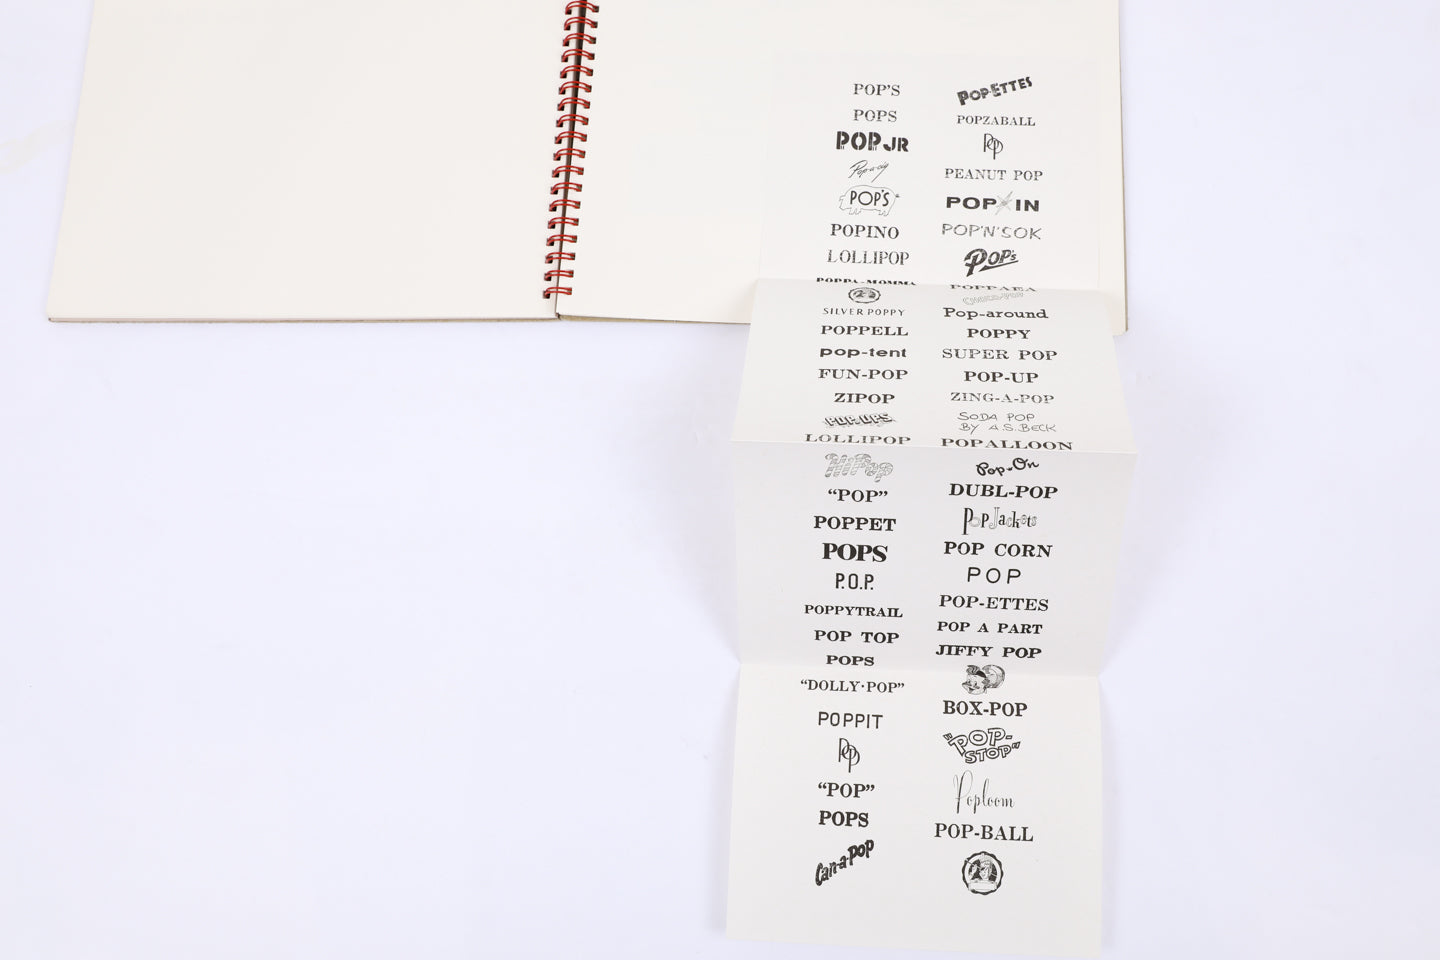 POP'S
POPS
POP JR
Pop-a-cig
POP'S
POPINO
LOLLIPOP
POPPA-MOMMA
SILVER POPPY
POPPELL
pop-tent
FUN-POP
ZIPOP
POP-UPS
LOLLIPOP
HiPop
“POP”
POPPET
POPS
P.O.P.
POPPYTRAIL
POP TOP
POPS
“DOLLY·POP”
POPPIT
Pop
“POP”
POPS
Can-a-pop
POP-ETTES
POPZABALL
Pop
PEANUT POP
POP IN
POP'N'SOK
POP's
Pop-around
POPPY
SUPER POP
POP-UP
ZING-A-POP
SODA POP
BY A.S. BECK
POPALLOON
Pop-On
DUBL-POP
PopJackets
POP CORN
POP
POP-ETTES
POP A PART
JIFFY POP
BOX-POP
“POP-
STOP”
Poploom
POP-BALL